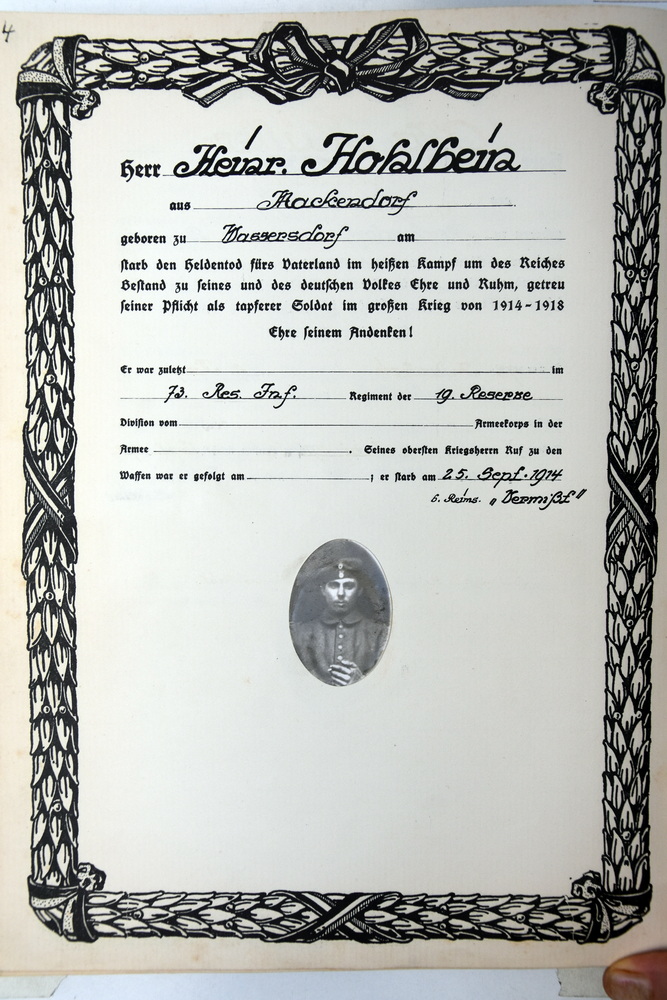 4
Herr Heinr. Hohlbein
aus Mackendorf
geboren zu Wassersdorf am
starb den Heldentod fürs Vaterland im heißen Kampf um des Reiches
Bestand zu seines und des deutschen Volkes Ehre und Ruhm, getreu
seiner Pflicht als tapferer Soldat im großen Krieg von 1914-1918
Ehre seinem Andenken!
Er war zuletzt im
73. Res. Inf. Regiment der 19. Reserve
Division vom Armeekorps in der
Armee . Seines obersten Kriegsherrn Ruf zu den
Waffen war er gefolgt am ; er starb am 25. Sept. 1914
b. Reims. „Vermißt"